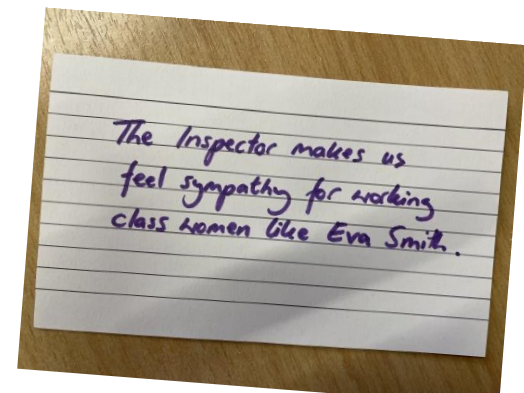 The Inspector makes us
feel sympathy for working
class women like Eva Smith.